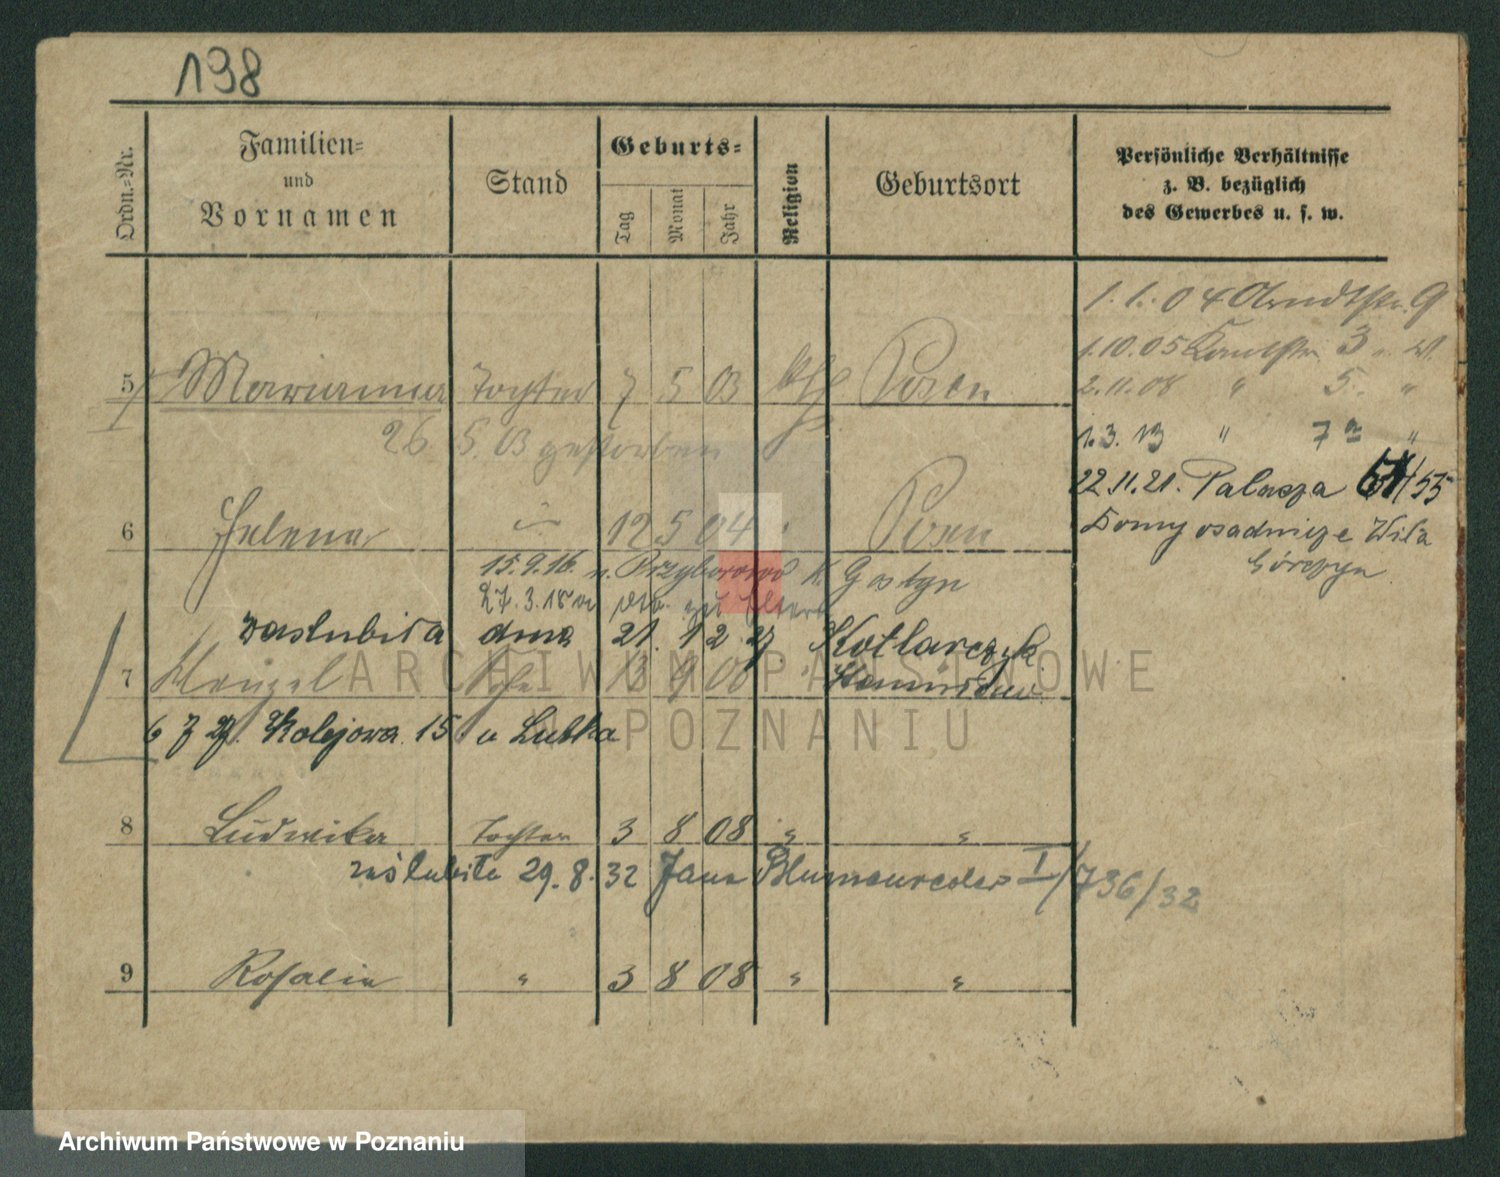 198
Ordn.=Nr.
Familien=
und
Vornamen
Stand
Geburts=
Tag
Monat
Jahr
Religion
Geburtsort
Persönliche Verhältnisse
z. B. bezüglich
des Gewerbes u. s. w.
1.1.04 Arndtstr. 9
1.10.05 3 W.
5 Marianna Tochter 7 5 03 kth Posen
2.11.08 " 5. "
26. 5. 03 gestorben
1.3.13 " 7a "
22.11.21. Palacza 55
6 Helena " 12 5 04 " Posen
Domy osadnicze Wila
Górczyn
15.9.16. n. Przyborowo K. Gostyn
27.3.18 zu
zaślubiła dnia 21 12 27 Kotlarczyk
7 3 9 06 " Stanisław
6 7 27. Kolejowa 15 u Lubka
8 Ludwika Tochter 3 8 08 " "
zaślubiła 29.8.32 Jana I/736/32
9 Rosalie " 3 8 08 " "
ARCHIWUM PAŃSTWOWE
W POZNANIU
Archiwum Państwowe w Poznaniu